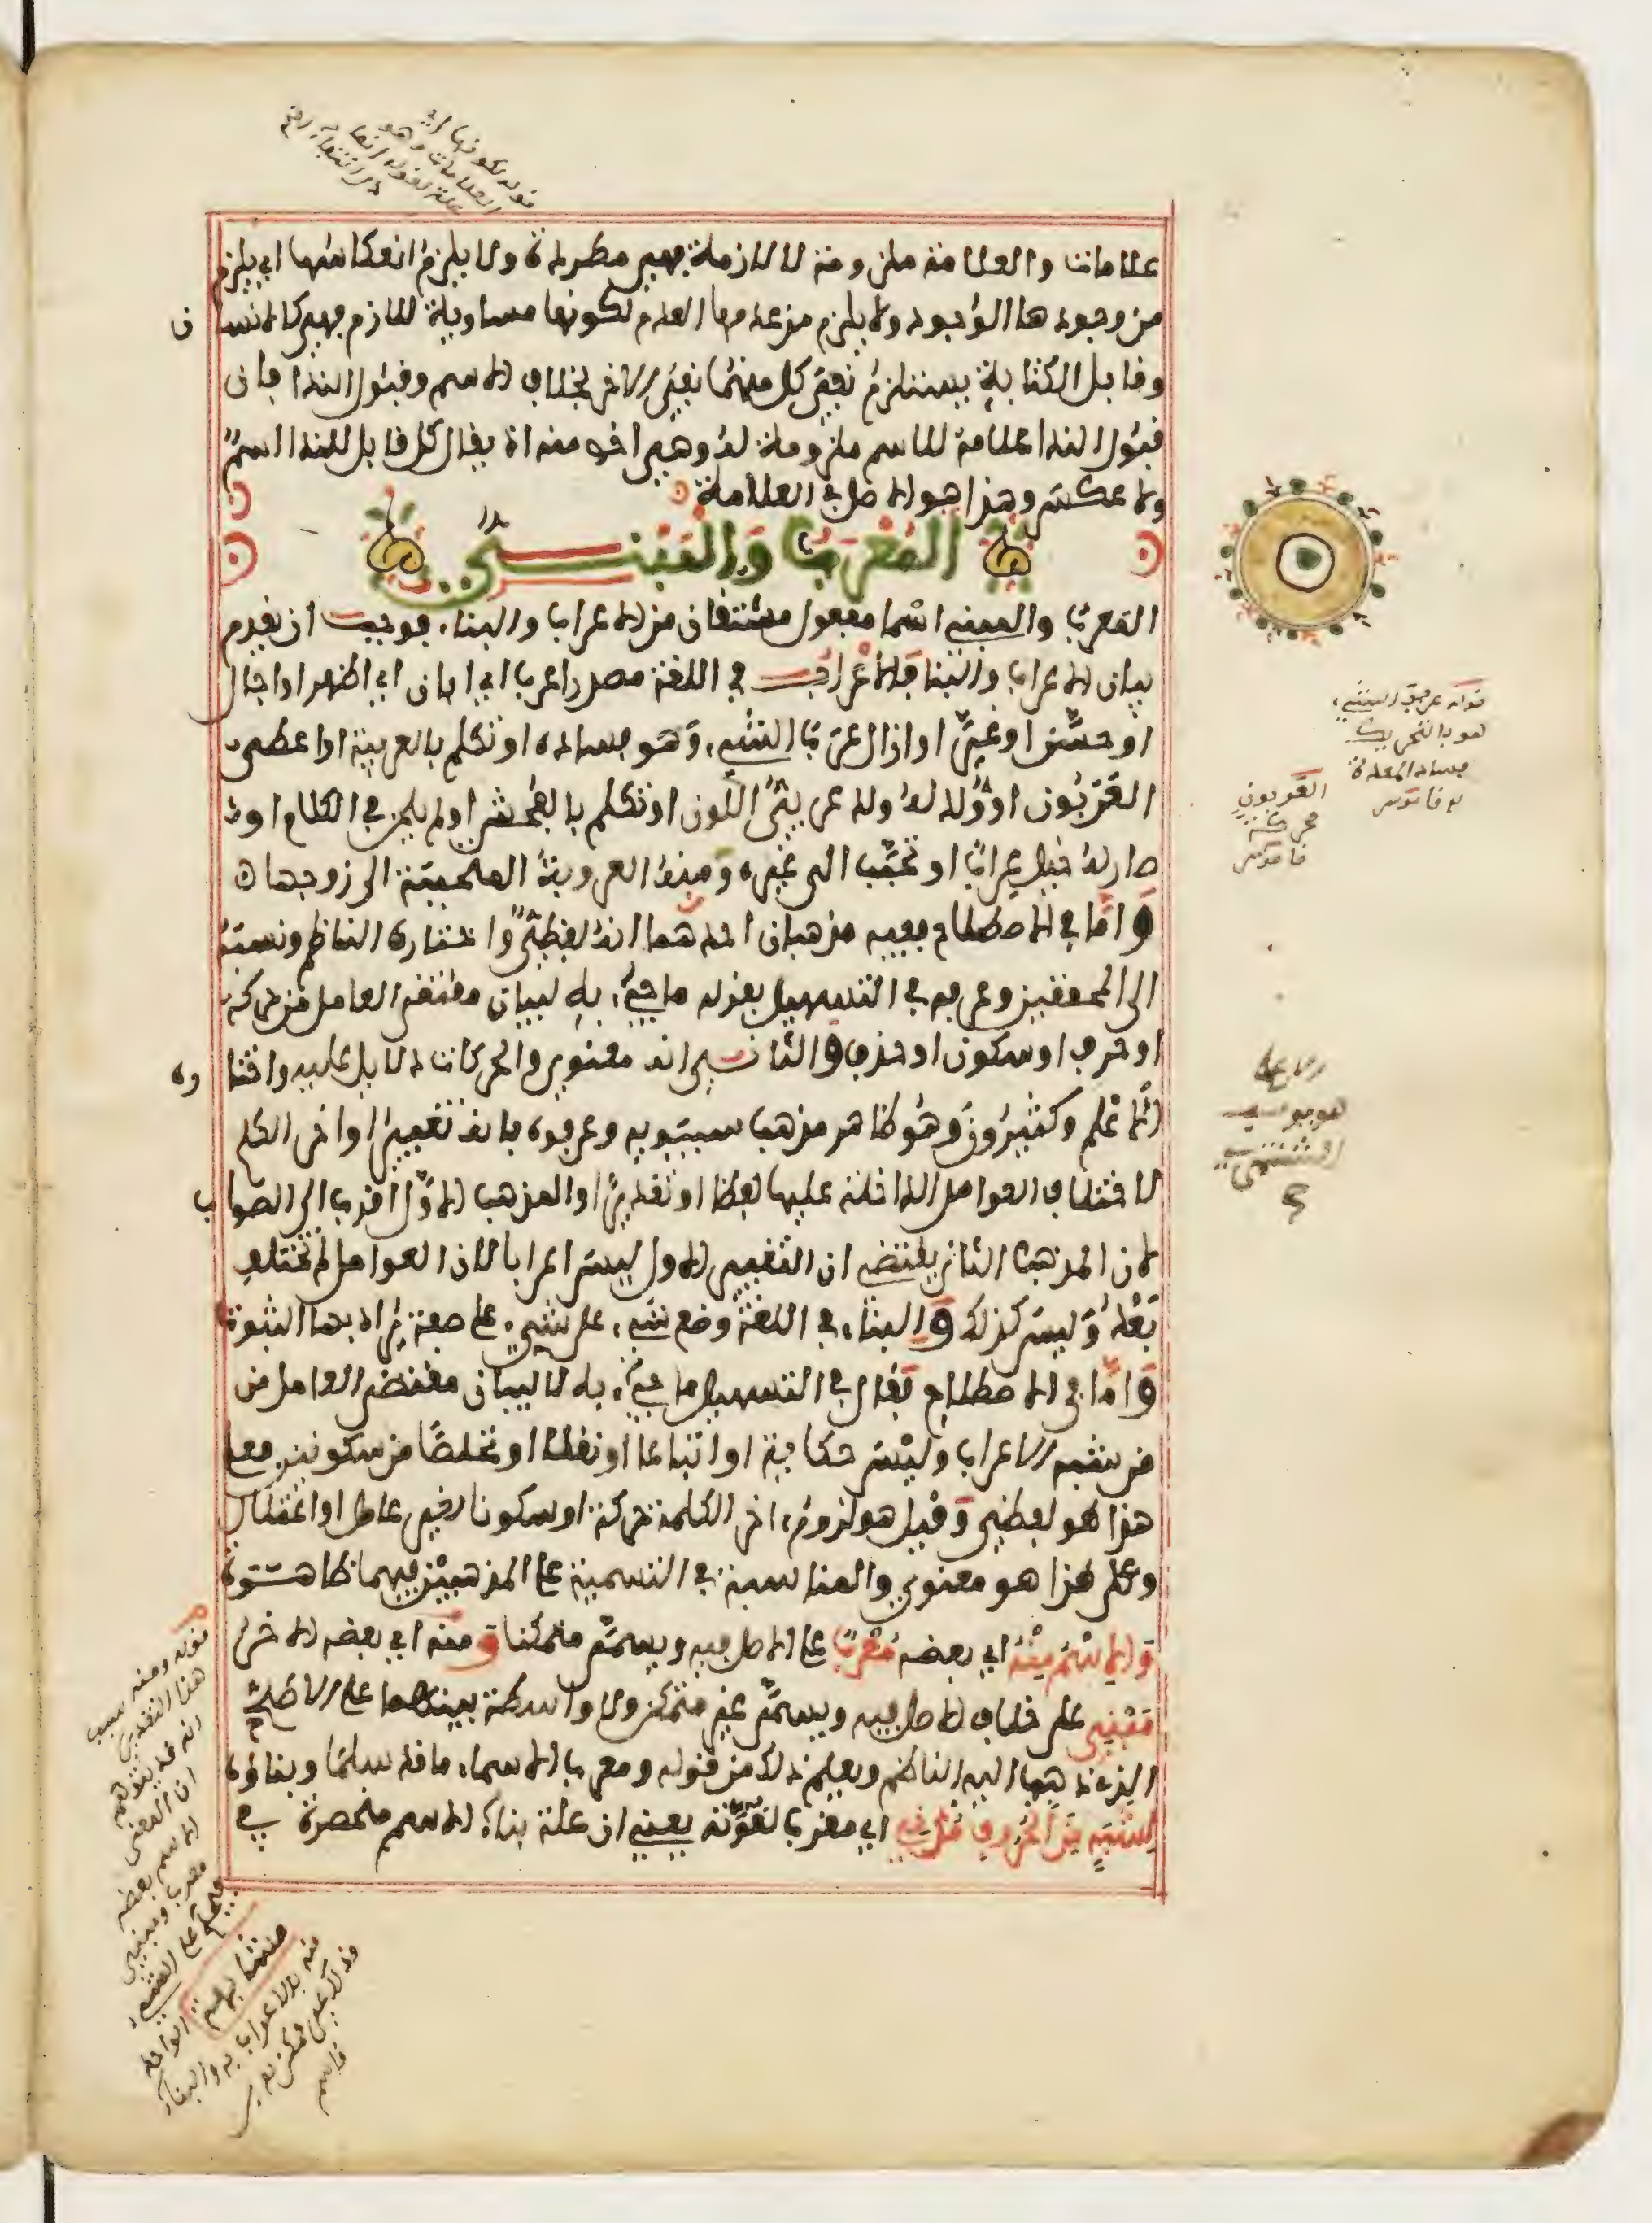 علامات والعلامة ملزومة لا لازمة فهي مطردة ولا يلزم انعكاسها اي يلزم
من وجودها الوجود ولا يلزم من عدمها العدم لكونها مساوية للازم فهي كالانسان
وقابل الكتابة يستلزم نفي كل منهما نفي الاخر بخلاف الاسم وقبول الندا فان
قبول الندا علامة للاسم ملزومة له وهي اخص منه اذ يقال كل قابل للندا اسم
ولا عكس وهذا هو الاصل في العلامة
المعرب والمبني
المعرب والمبني اسما مفعول مشتقان من الاعراب والبناء، فوجب ان يقدم
بيان الاعراب والبنا فالاعراب في اللغة مصدر اعرب اي ابان اي اظهر او اجال
او حسّن او غيّر او ازال عرب الشيء، وهو فساده او تكلم بالعربية او اعطى
العربون او ولد له ولد عربي اللون او تكلم بالفحش او لم يلحن في الكلام او
صار له خيل عراب او تحبب الى غيره ومنه العروبة المتحببة الى زوجها
واما في الاصطلاح ففيه مذهبان احدهما انه لفظي واختاره الناظم ونسبه
الى المحققين وعرفه في التسهيل بقوله ما جيء به لبيان مقتضى العامل من حركة
او حرف او سكون او حذف والثاني انه معنوي والحركات دلايل عليه واختاره
الاعلم وكثيرون وهو ظاهر مذهب سيبويه وعرفوه بانه تغيير اواخر الكلم
لاختلاف العوامل الداخلة عليها لفظا او تقديرا والمذهب الاول اقرب الى الصواب
لان المذهب الثاني يقتضي ان التغيير الاول ليس اعرابا لان العوامل لم تختلف
بعد وليس كذلك والبناء في اللغة وضع شيء على شيء على صفة يراد بها الثبوت
واما في الاصطلاح فقال في التسهيل ما جيء به لا لبيان مقتضى العامل من
من شبه الاعراب وليس حكاية او اتباعا او نقلا او تخلصا من سكونين فعلى
هذا هو لفظي وقيل هو لزوم اخر الكلمة حركة او سكونا لغير عامل او اعتلال
وعلى هذا هو معنوي والمناسبة في التسمية على المذهبين فيهما ظاهرة
والاسم منه اي بعضه معرب على الاصل فيه ويسمى متمكنا و منه اي بعضه الاخر
مبني على خلاف الاصل فيه ويسمى غير متمكن ولا واسطة بينهما على الاصح
الذي ذهب اليه الناظم ويعلم ذلك من قوله ومعرب الاسماء ما قد سلما وبناؤه
لشبه من الحروف مدني اي مقرب لقوته يعني ان علة بناء الاسم منحصرة في
قوله لكونها اي
العلامات وهو
علة لقوله
قوله عرب الشيء،
هو بالتحريك
فساد المعدة
قاموس
العربون
محركة
قاموس
هو يوسف
الشنتمري
قوله ومنه سبب
هذا التقدير
انه قد يتوهم
ان المعنى
الاسم بعضه
معرب ومبني